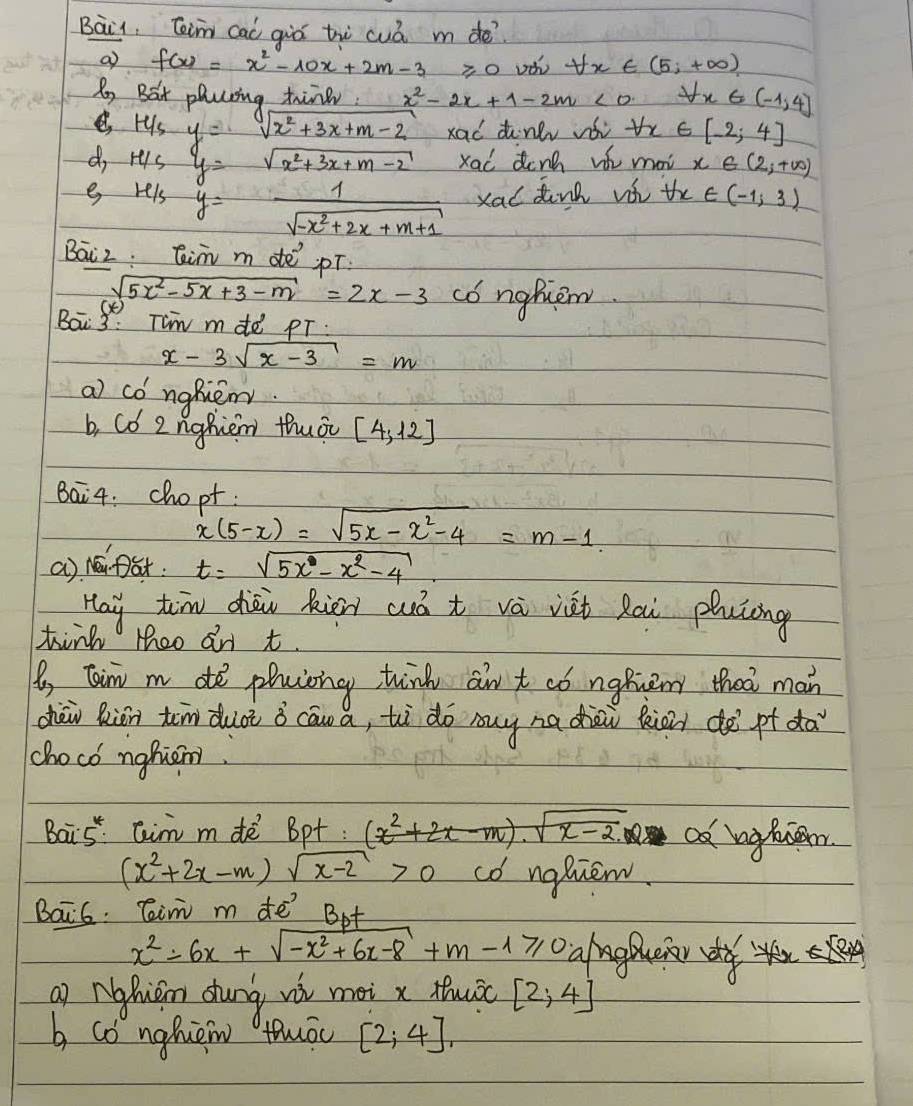 Bài 1. Tìm các giá trị của m để.
a) f(x) = x² - 10x + 2m - 3 ≥ 0 với ∀x ∈ (5; +∞)
b, Bất phương trình: x² - 2x + 1 - 2m < 0. ∀x ∈ (-1; 4]
c, H/s y = √(x² + 3x + m - 2) xác định với ∀x ∈ [-2; 4]
d, H/s y = √(x² + 3x + m - 2) xác định với mọi x ∈ (2; +∞)
e, H/s y = 1/√(-x² + 2x + m + 1) xác định với ∀x ∈ (-1; 3)
Bài 2: Tìm m để PT:
√(5x² - 5x + 3 - m) = 2x - 3 có nghiệm.
Bài 3(*): Tìm m để PT:
x - 3√(x - 3) = m
a) có nghiệm.
b, Có 2 nghiệm thuộc [4; 12]
Bài 4: Cho pt:
x(5 - x) = √(5x - x² - 4) = m - 1.
a) Nếu Đặt: t = √(5x - x² - 4)
Hãy tìm điều kiện của t và viết lại phương
trình theo ẩn t.
b, Tìm m để phương trình ẩn t có nghiệm thoả mãn
điều kiện tìm được ở câu a, từ đó suy ra điều kiện để pt đã
cho có nghiệm.
Bài 5*: Tìm m để Bpt: (x² + 2x - m).√(x - 2) có nghiệm.
(x² + 2x - m) √(x - 2) > 0 có nghiệm.
Bài 6: Tìm m để Bpt
x² - 6x + √(-x² + 6x - 8) + m - 1 ≥ 0 a/nghiệm ∀x ∈
a) Nghiệm đúng với mọi x thuộc [2; 4]
b, Có nghiệm thuộc [2; 4].